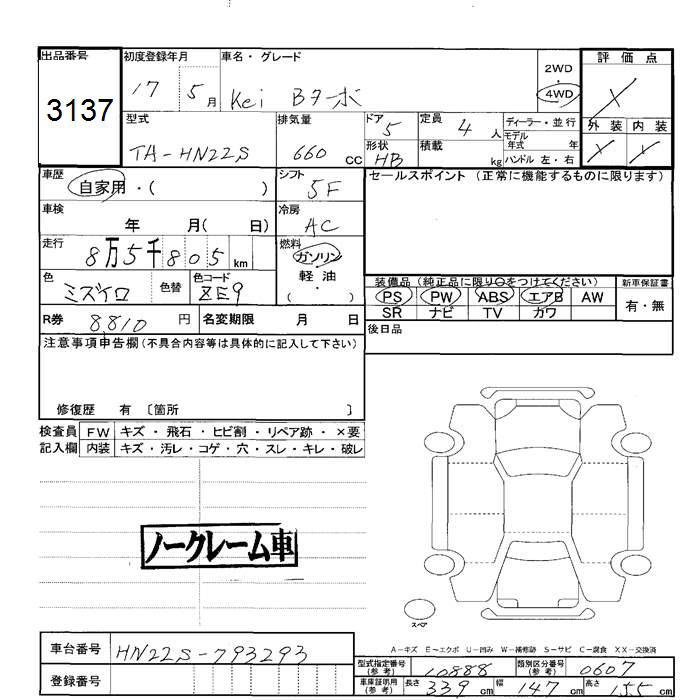 出品番号 初度登録年月 車名・グレード 評価点
3137 17 5月 Kei Bターボ 2WD・4WD X
型式 排気量 ドア 5 定員 4人 ディーラー・並行 外装 内装
TA-HN22S 660cc 形状 HB 積載 kg モデル年式 年 ハンドル 左・右 X X
車歴 自家用・( ) シフト 5F セールスポイント (正常に機能するものに限ります)
車検 年 月( 日) 冷房 AC
走行 8万5千805km 燃料 ガソリン・軽油( )
色 ミズイロ 色替 色コード ZE9 装備品 (純正品に限り○をつけてください) 新車保証書
PS PW ABS エアB AW 有・無
SR ナビ TV カワ
R券 8810円 名変期限 月 日 後日品
注意事項申告欄(不具合内容等は具体的に記入して下さい)
修復歴 有 〔箇所 〕
検査員 FW キズ・飛石・ヒビ割・リペア跡・×要
記入欄 内装 キズ・汚レ・コゲ・穴・スレ・キレ・破レ
ノークレーム車
スペア
A-キズ E-エクボ U-凹み W-補修跡 S-サビ C-腐食 XX-交換済
車台番号 HN22S-793293
登録番号
型式指定番号(参考) 10888 類別区分番号(参考) 0607
車庫証明用(参考) 長さ 339cm 幅 147cm 高さ 155cm